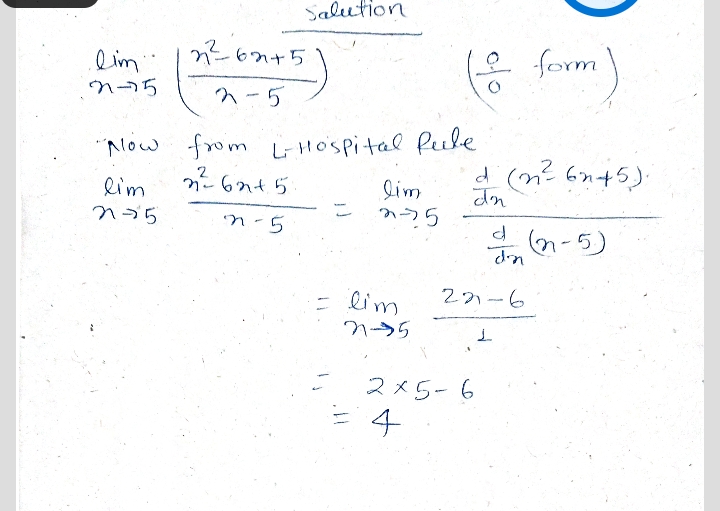 Solution
lim x→5 (x²-6x+5 / x-5) (0/0 form)
Now from L-Hospital Rule
lim x→5 x²-6x+5 / x-5 = lim x→5 d/dx (x²-6x+5) / d/dx (x-5)
= lim x→5 2x-6 / 1
= 2×5-6
= 4